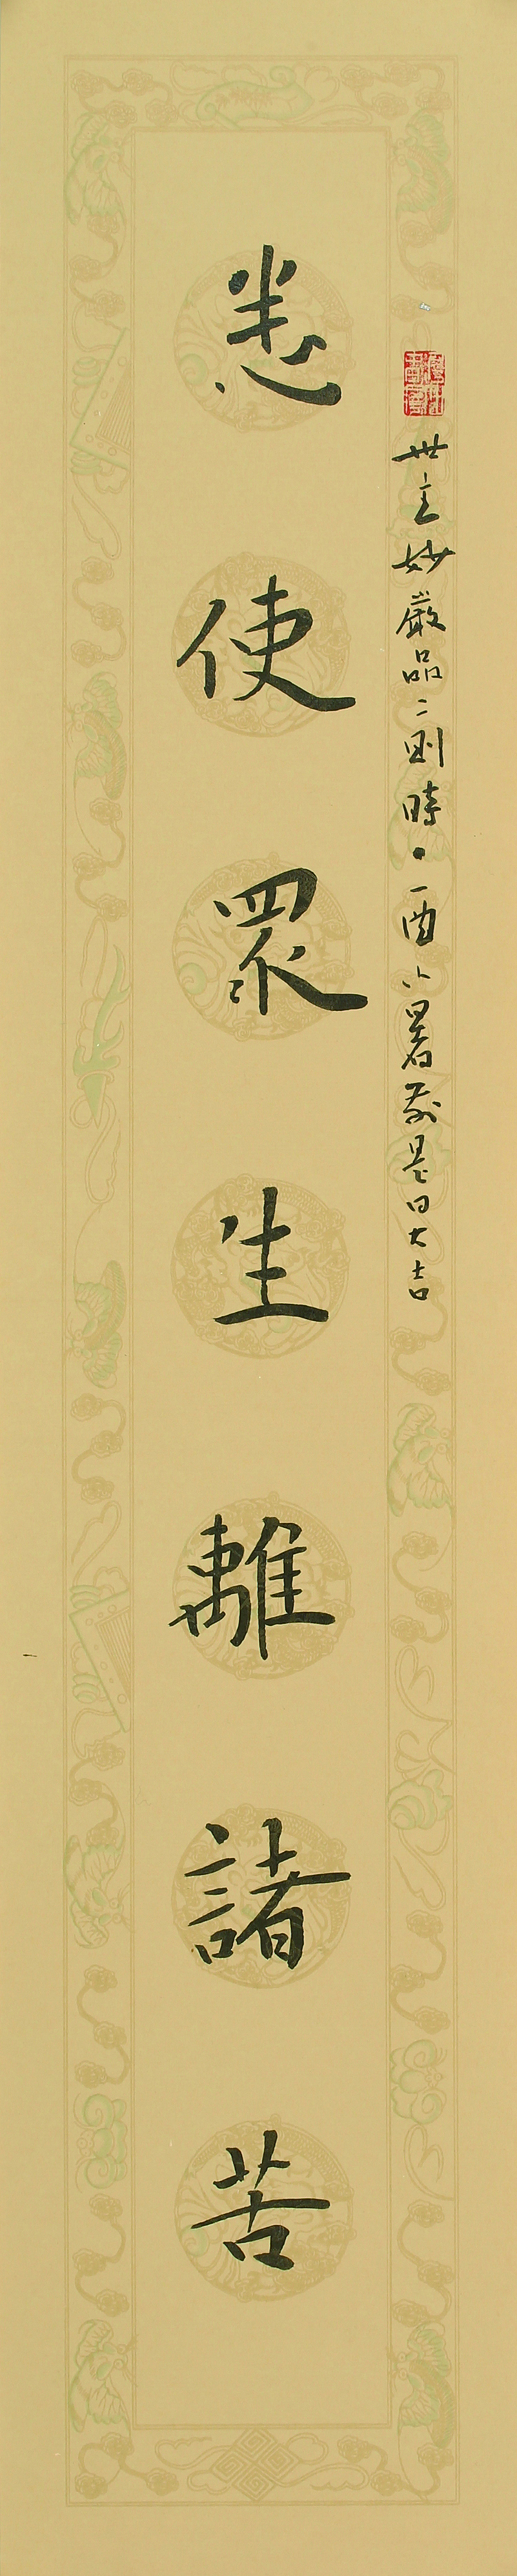 世主妙嚴品二則時丁酉小暑前是日大吉
悉使眾生離諸苦